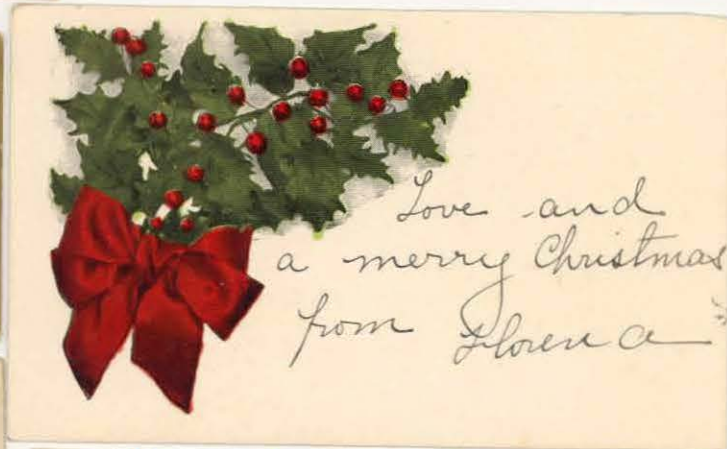 Love and
a merry Christmas
from Florence